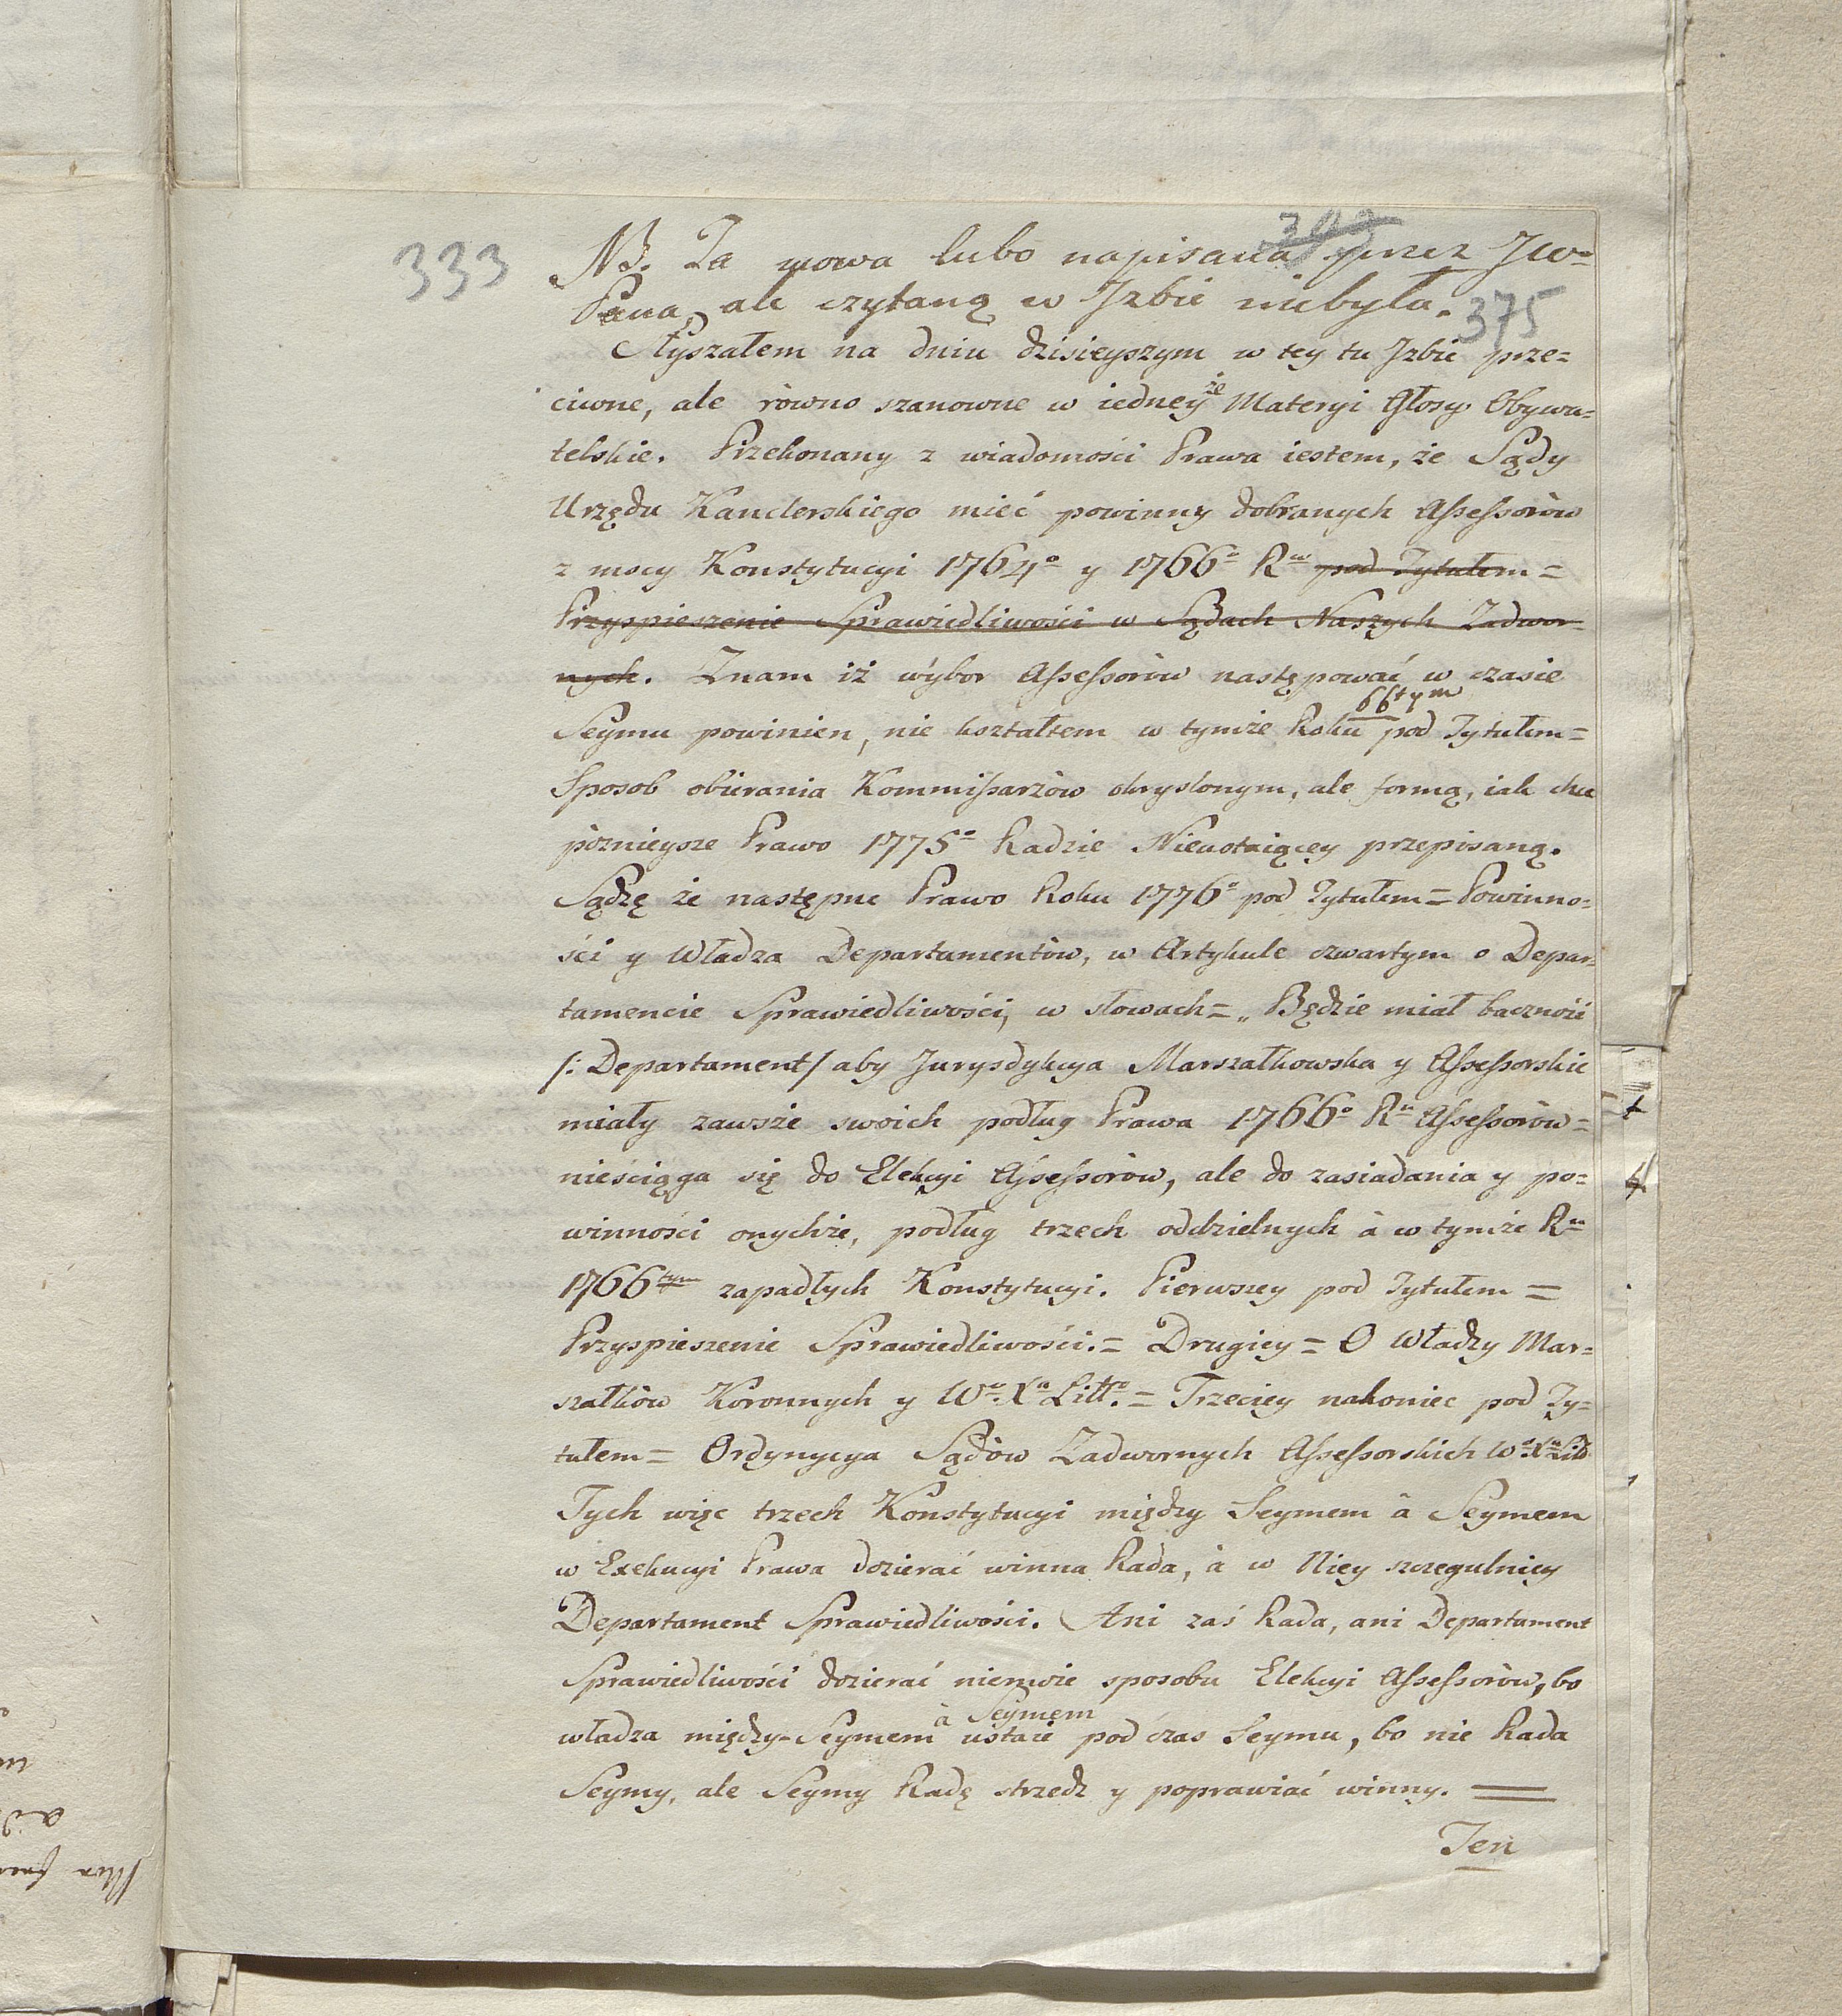 333
303
NB. Ta mowa lubo napisana przez JW-
Pana, ale czytaną w Jzbie niebyła.
375
Słyszałem na dniu dzisieyszym w tey tu Jzbie prze=
ciwne, ale ròwno szanowne w iedney że Materyi Głosy Obywa=
telskie. Przekonany z wiadomości Prawa iestem, że Sądy
Urzędu Kanclerskiego mieć powinny dobranych Assessoròw
z mocy Konstytucyi 1764o y 1766o Ru pod Tytułem=
Przyspieszenie Sprawiedliwości w Sądach Naszych Zadwor-
nych. Znam iż wybor Assessoròw następować w czasie
66tym
Seymu powinien, nie kształtem w tymże Roku pod Tytułem=
Sposob obierania Kommissarzòw okryslonym, ale formą, iak chce
pòznieysze Prawo 1775o Radzie Nieustaiącey przepisaną.
Sądzę że następne Prawo Roku 1776o pod Tytułem= Powinno=
ści y Władza Departamentòw, w Artykule czwartym o Depar=
tamencie Sprawiedliwości, w słowach= „Będzie miał baczność
/: Departament/ aby Jurysdykcya Marszałkowska y Assessorskie
miały zawsze swoich podług Prawa 1766o Ru Assessoròw=
nieściąga się do Elekcyi Assessoròw, ale do zasiadania y po=
winności onychże, podług trzech oddzielnych à w tymże Ru
1766tym zapadłych Konstytucyi. Pierwszey pod Tytułem=
Przyspieszenie Sprawiedliwości.= Drugiey= O Władzy Mar=
szałkòw Koronnych y Wo Xa Litto.= Trzeciey nakoniec pod Ty=
tułem= Ordynycya Sądòw Zadwornych Assessorskich Wo Xa Litt
Tych więc trzech Konstytucyi między Seymem à Seymem
w Exekucyi Prawa dozierać winna Rada, à w Niey szczegulniey
Departament Sprawiedliwości. Ani zaś Rada, ani Departament
Sprawiedliwości dozierać niemoże sposobu Elekcyi Assessoròw, bo
à Seymem
władza między-Seymem ustaie pod czas Seymu, bo nie Rada
Seymy, ale Seymy Radę strzedz y poprawiać winny.=
Ten